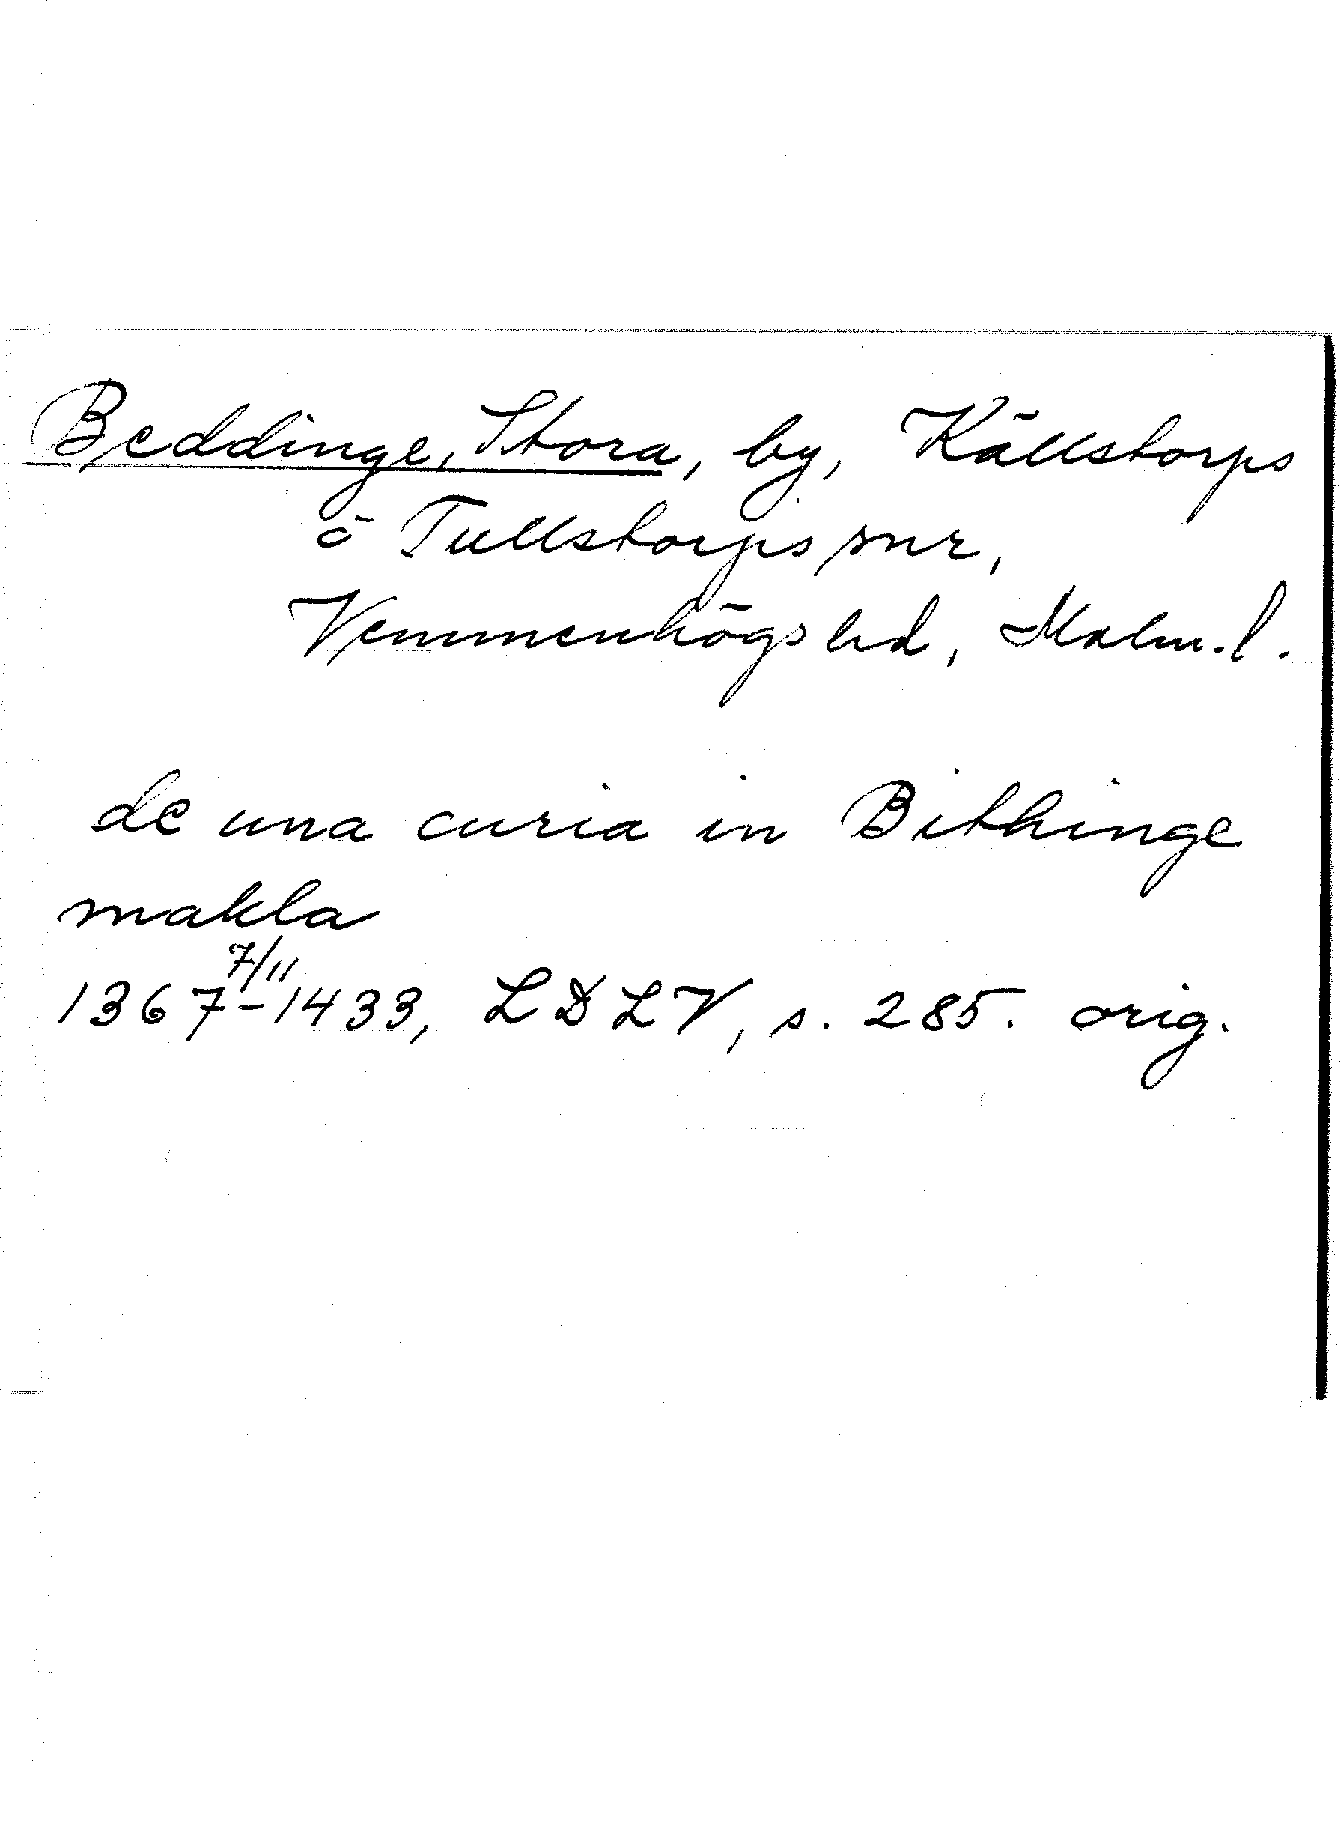 Beddinge, Stora, by, Källstorps
o Tullstorps snr,
Vemmenhögs hd, Malm. l.
de una curia in Bithinge
makla
1367 7/11 - 1433, LDLV, s. 285. orig.